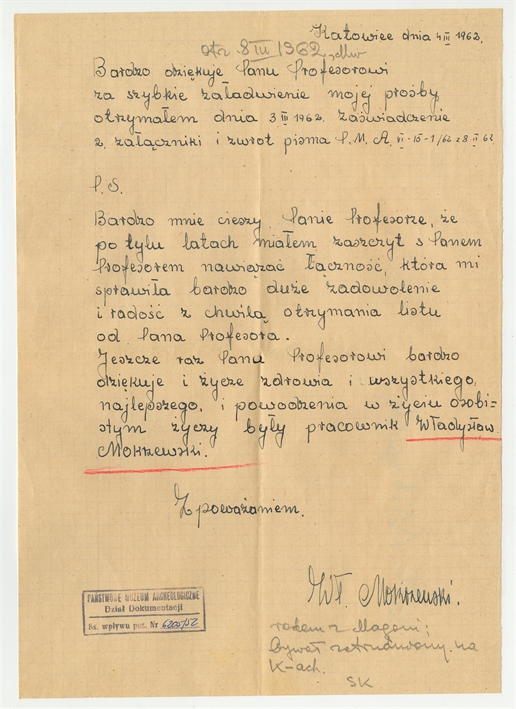 Katowice dnia 4 III 1962.
otr. 8 III 1962
Bardzo dziękuję Panu Profesorowi
za szybkie załadwienie mojej prośby
otrzymałem dnia 3 III 1962. zaświadczenie
2 załączniki i zwrot pisma P. M. A. VI-15-1/62 z 8. II 62
P.S.
Bardzo mnie cieszy Panie Profesorze, że
po tylu latach miałem zaszczyt s Panem
Profesorem nawiązać łączność, która mi
sprawiła bardzo duże zadowolenie
i radość z chwilą otrzymania listu
od Pana Profesora.
Jeszcze raz Panu Profesorowi bardzo
dziękuje i życze zdrowia i wszystkiego
najlepszego, i powodzenia w życiu osobi-
stym życzy były pracownik Władysław
Mokrzewski.
Z poważaniem.
Wł. Mokrzewski.
PAŃSTWOWE MUZEUM ARCHEOLOGICZNE
Dział Dokumentacji
Ks. wpływu poz. Nr
rodem z
bywał zatrudniony na
K-ach.
SK